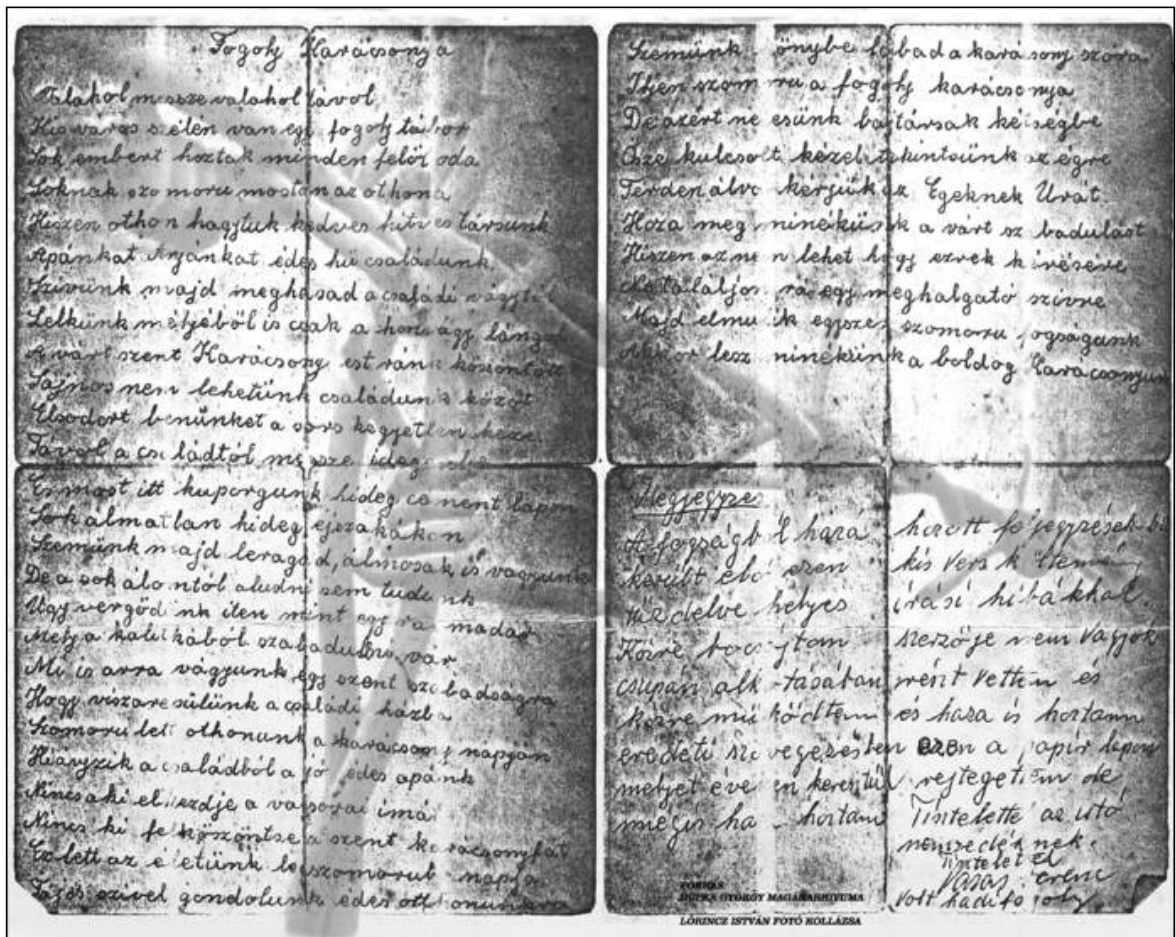 Fogolj Karácsonja
Valahol messze valahol távol
Kis város szélen van egy fogolj tábor
Sok embert hoztak minden felöl oda
Soknak szomoru mostan az othona
Hiszen othon hagytuk kedves hitves társunk
Apánkat Anjánkat édes hü családunk
Szivünk majd meghasad a családi vágytól
Lelkünk méljéböl is csak a honvágy lángol
A várt szent Karácsony est ránk köszöntött
Sajnos nem lehetünk családunk között
Elsodort benünket a sors kegyetlen keze
Távol a családtól messze
Es most itt kuporgunk hideg cement lapon
Sok álmatlan hideg éjszakákon
Szemünk majd leragad, álmosak is vagyunk
De a sok álomtól aludni sem tudunk
Ugy vergödünk iten mint egy rab madár
Melj a kalitkából szabadulni vár
Mi is arra vágyunk egy szent szabadságra
Hogy viszare sülünk a családi házba
Szomoru lett othonunk a karácsony napján
Hiányzik a családból a jó édes apánk
Nincs aki elkezdje a vacsorai imát
Nincs ki felköszöntse a szent karácsonyfát
Ez lett az életünk legszomorub napja
Fájós szivel gondolunk édes otthonunkra
Szemünk könybe lábad a karácsony szora
Iljen szomoru a fogolj karácsonja
De azért ne esünk bajtársak kétségbe
Ösze kulcsolt kézel tekintsünk az égre
Térden álva kérjük az Egeknek Urát
Hoza meg minékünk a várt szabadulást
Hiszen az nem lehet hogy ezrek kérésére
Ne találjon rá egy meghalgató szivre
Majd elmulik egyszer szomorru fogságunk
Akkor lesz minekünk a boldog Karácsonyunk
Megjegyzés
A fogságból haza hozott feljegyzésekböl
került elö ezen kis vers költemény
tüzdelve helyes irási hibákkal.
Közre bocsájtom szerzöje nem vagyok
csupán alkotásában részt vettem és
közre müködtem és haza is hoztam
eredeti szövegezésben ezen a papir lapon
meljet éveken keresztül rejtegettem de
mégis haza hoztam Tiszteletté az utó
nemzedéknek.
Tisztelettel
Vasas Ferenc
volt hadifogoly
FORRÁS
DUPKA GYÖRGY MAGÁNARHIVUMA
LŐRINCZ ISTVÁN FOTÓ KOLLÁZSA